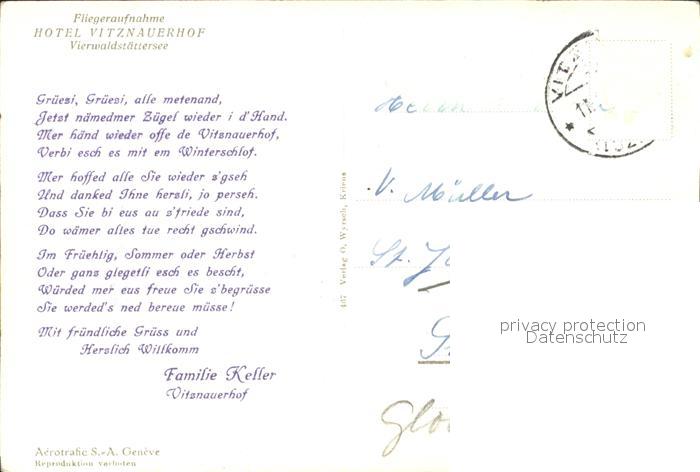 Fliegeraufnahme
HOTEL VITZNAUERHOF
Vierwaldstättersee
Grüezi, Grüezi, alle metenand,
Jetzt nämedmer Zügel wieder i d'Hand.
Mer händ wieder offe de Vitznauerhof,
Verbi esch es mit em Winterschlof.
Mer hoffed alle Sie wieder z'gseh
Und danked Ihne herzli, jo perseh.
Dass Sie bi eus au z'friede sind,
Do wämer alles tue recht gschwind.
Im Früehlig, Sommer oder Herbst
Oder ganz glegetli esch es bescht,
Würded mer eus freue Sie z'begrüsse
Sie werded's ned bereue müsse!
Mit fründliche Grüss und
Herzlich Willkomm
Familie Keller
Vitznauerhof
Aérotrafic S.-A. Genève
Reproduktion verboten
407 Verlag O. Wyrsch, Kriens
V. Müller
St. J
Glo
privacy protection
Datenschutz